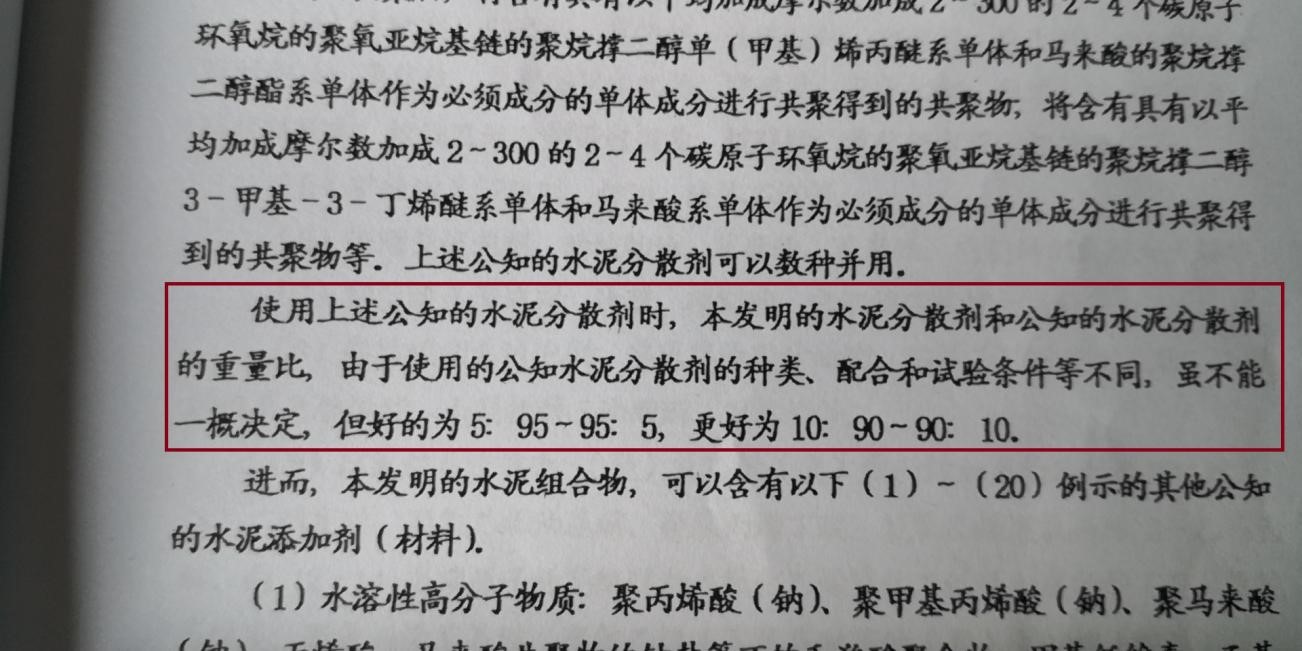 环氧烷的聚氧亚烷基链的聚烷撑二醇单（甲基）烯丙醚系单体和马来酸的聚烷撑
二醇酯系单体作为必须成分的单体成分进行共聚得到的共聚物；将含有具有以平
均加成摩尔数加成2~300的2~4个碳原子环氧烷的聚氧亚烷基链的聚烷撑二醇
3-甲基-3-丁烯醚系单体和马来酸系单体作为必须成分的单体成分进行共聚得
到的共聚物等。上述公知的水泥分散剂可以数种并用。
使用上述公知的水泥分散剂时，本发明的水泥分散剂和公知的水泥分散剂
的重量比，由于使用的公知水泥分散剂的种类、配合和试验条件等不同，虽不能
一概决定，但好的为5：95~95：5，更好为10：90~90：10。
进而，本发明的水泥组合物，可以含有以下（1）~（20）例示的其他公知
的水泥添加剂（材料）。
（1）水溶性高分子物质：聚丙烯酸（钠）、聚甲基丙烯酸（钠）、聚马来酸